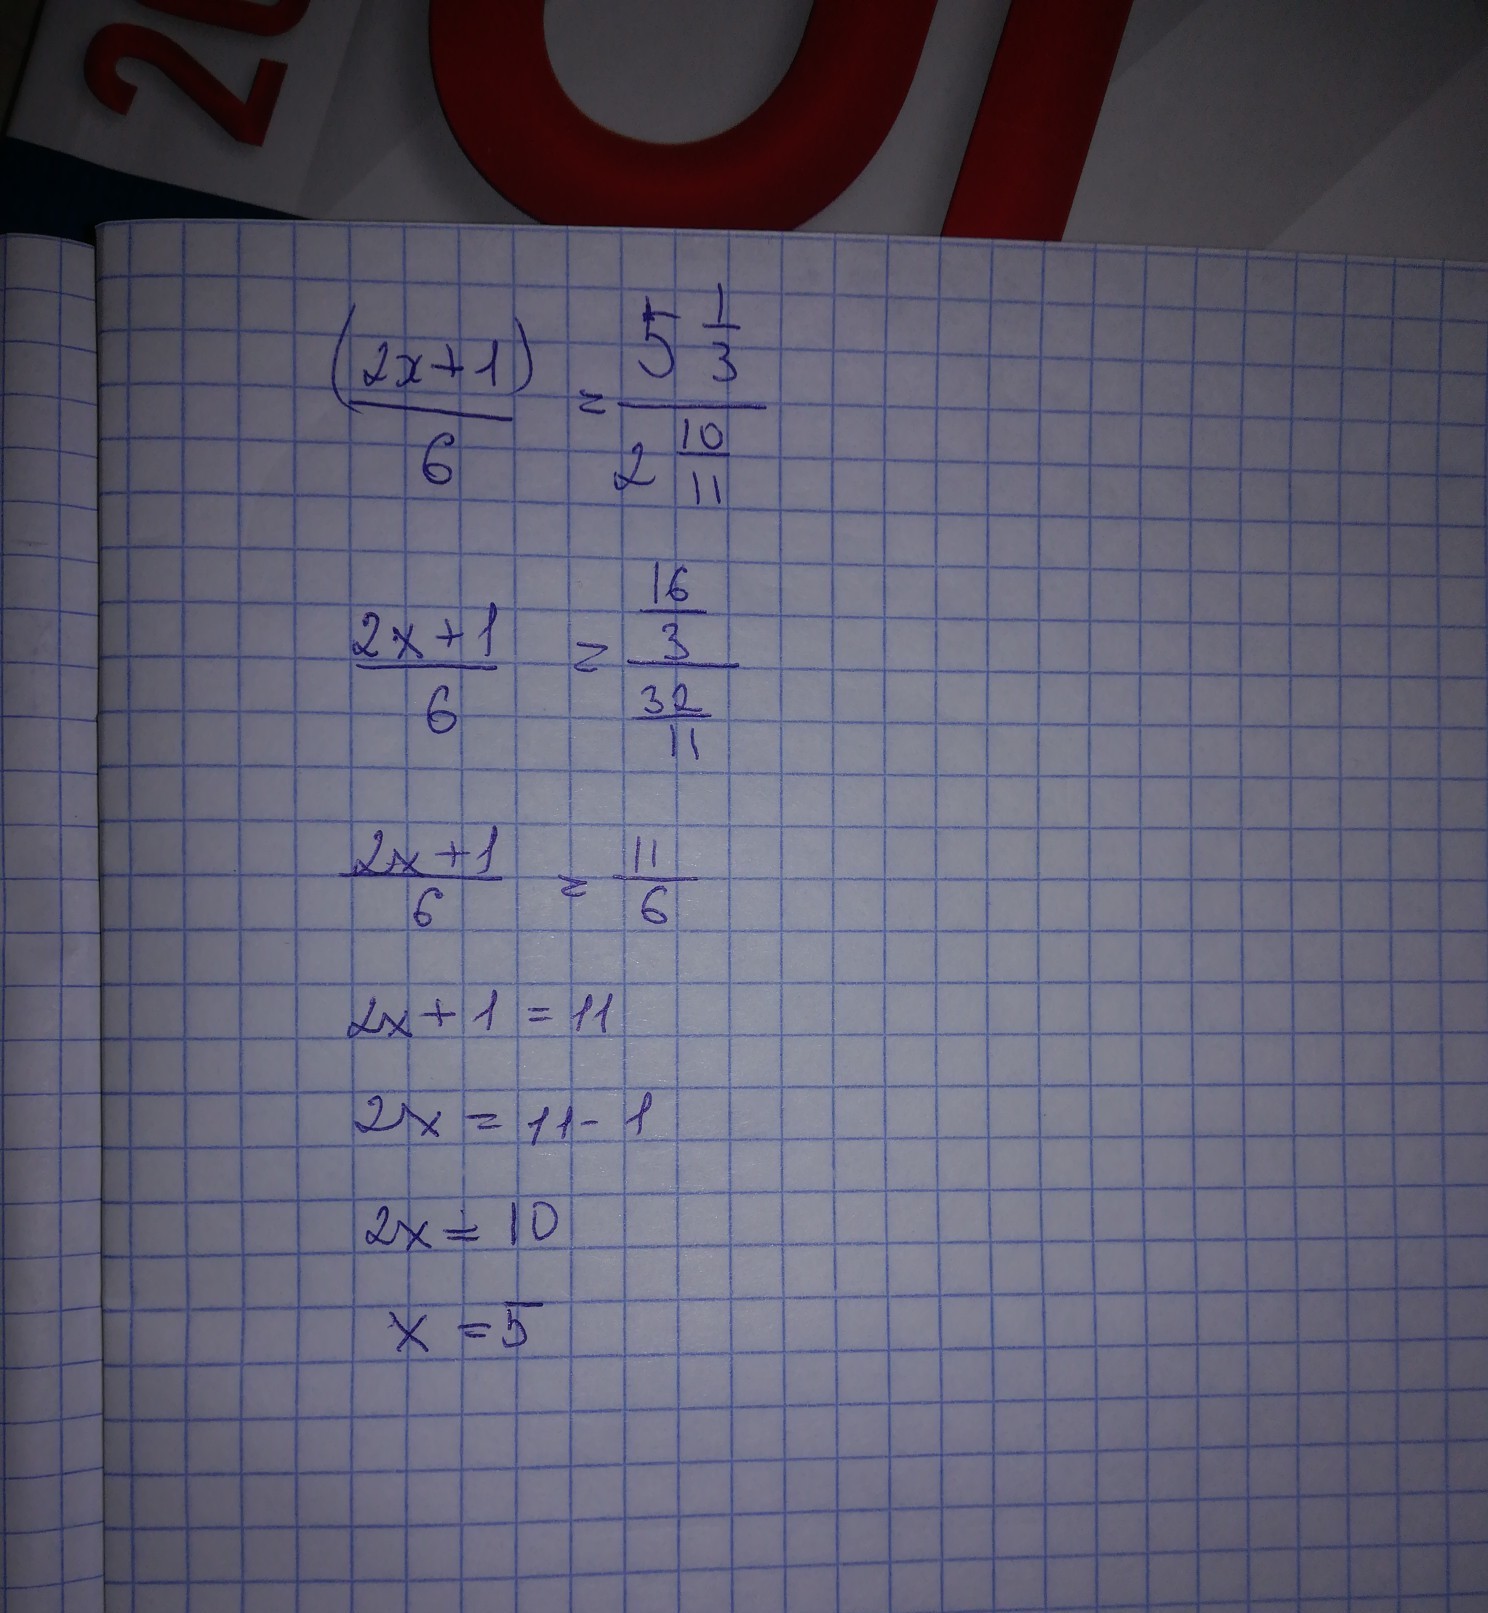 (2x+1)/6 = 5 1/3 / 2 10/11
2x+1/6 = 16/3 / 32/11
2x+1/6 = 11/6
2x+1=11
2x=11-1
2x=10
x=5